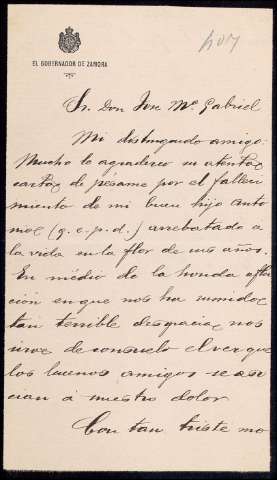 4017
EL GOBERNADOR DE ZAMORA
Sr. Don Jose Mª Gabriel
Mi distinguido amigo:
Mucho le agradezco su atenta
carta de pésame por el falleci
miento de mi buen hijo Anto
nio (q. e. p. d.) arrebatado a
la vida en la flor de sus años.
En médio de la honda aflic
ción en que nos ha sumido
tan terrible desgracia, nos
sirve de consuelo el ver que
los buenos amigos se aso
cian á nuestro dolor
Con tan triste mo